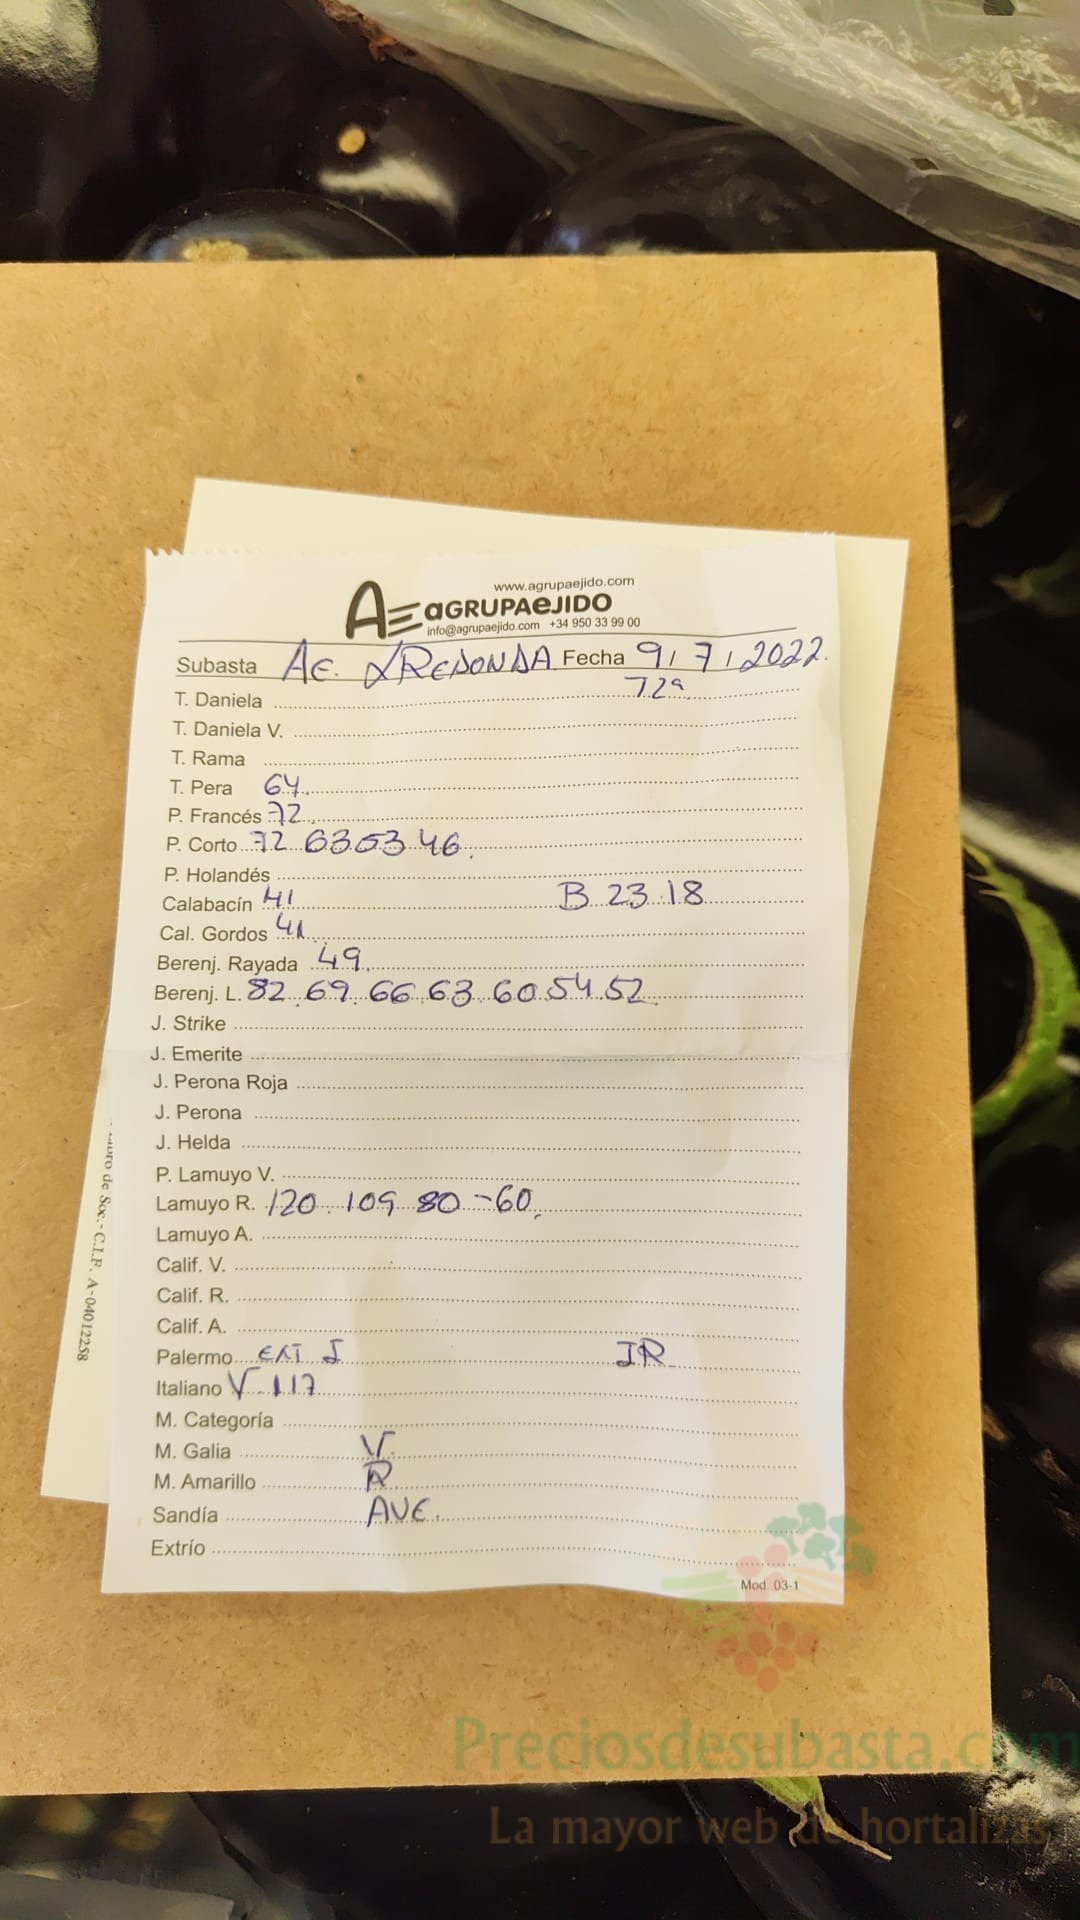 www.agrupaejido.com
AE aGRUPAeJIDO
info@agrupaejido.com +34 950 33 99 00
Subasta AE. LREDONDA Fecha 9/7/2022.
T. Daniela 72ª
T. Daniela V.
T. Rama
T. Pera 64
P. Francés 72
P. Corto 72 63 53 46
P. Holandés
Calabacín 41 B 23 18
Cal. Gordos 41
Berenj. Rayada 49
Berenj. L. 82 69 66 63 60 54 52
J. Strike
J. Emerite
J. Perona Roja
J. Perona
J. Helda
P. Lamuyo V.
Lamuyo R. 120 109 80 -60
Lamuyo A.
Calif. V.
Calif. R.
Calif. A.
Palermo EXT I IR
Italiano V 117
M. Categoría
M. Galia V
M. Amarillo R
Sandía AVE.
Extrío
Mod. 03-1
de Soc. - C.I.F. A-04012258
Preciosdesubasta.com
La mayor web de hortalizas